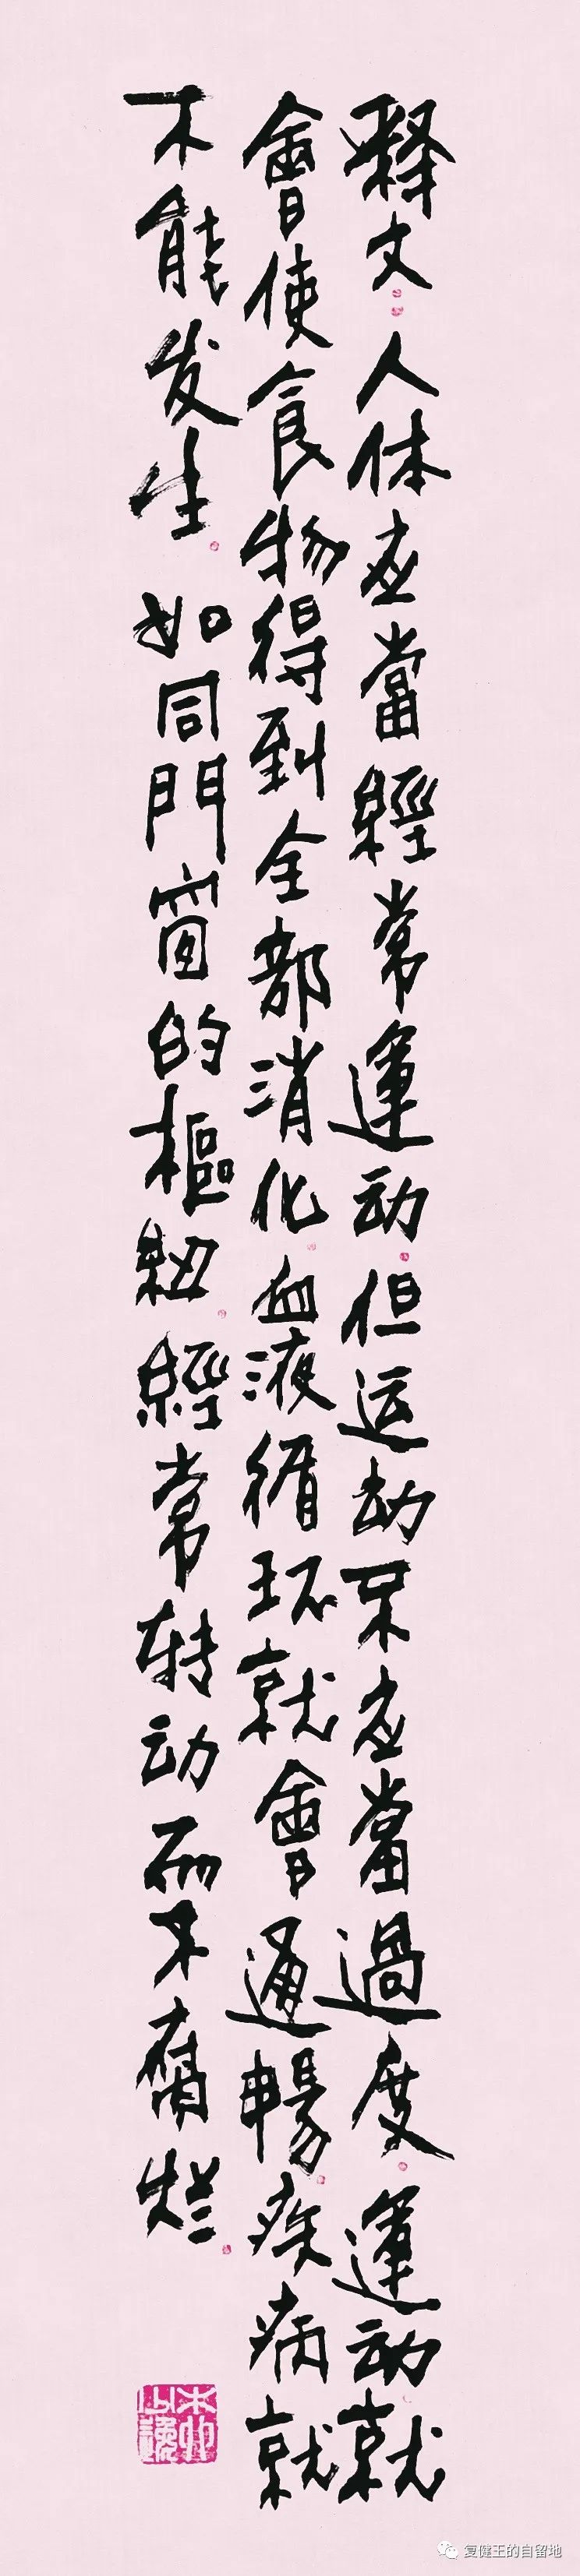 释文：人体应當經常運动。但运动不应當過度。運动就
會使食物得到全部消化。血液循环就會通暢。疾病就
不能发生。如同門窗的樞紐。經常转动而不腐烂。
复健王的自留地